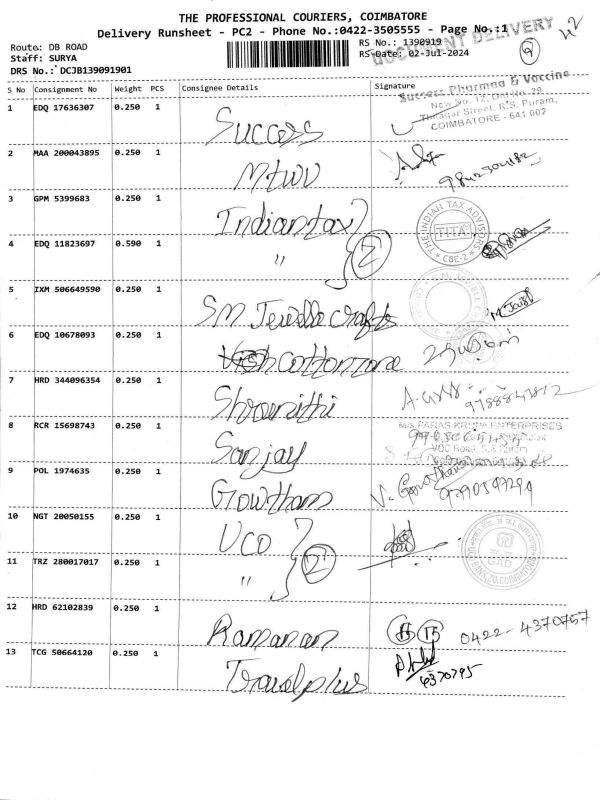 THE PROFESSIONAL COURIERS, COIMBATORE
Delivery Runsheet - PC2 - Phone No.:0422-3505555 - Page No.:1
DOCUMENT DELIVERY
Route: DB ROAD
Staff: SURYA
DRS No.: DCJB139091901
RS No.: 1390919
RS Date: 02-Jul-2024
S No Consignment No Weight PCS Consignee Details Signature
1 EDQ 17636307 0.250 1 Success
Success Pharmaa & Vaccine
New No. 12, Old No. 29,
Thiagar Street, R.S. Puram,
COIMBATORE - 641 002
2 MAA 200043895 0.250 1 Mtwv
3 GPM 5399683 0.250 1 Indiantax
THE INDIAN TAX ADVISORS
TITA
CBE-2
4 EDQ 11823697 0.590 1 " 2
5 IXM 506649590 0.250 1 SM Jewells Crafts
6 EDQ 10678093 0.250 1 Cottonzone
7 HRD 344096354 0.250 1 Shranithi
8 RCR 15698743 0.250 1 Sanjay
M/s. PARAS KRUPA ENTERPRISES
VOC Road, R.S. Puram
9 POL 1974635 0.250 1 Gowtham
10 NGT 20050155 0.250 1 UCO
11 TRZ 280017017 0.250 1 " 2
12 HRD 62102839 0.250 1 Ramanan 0422-4370757
13 TCG 50664120 0.250 1 Travelplus 4370795